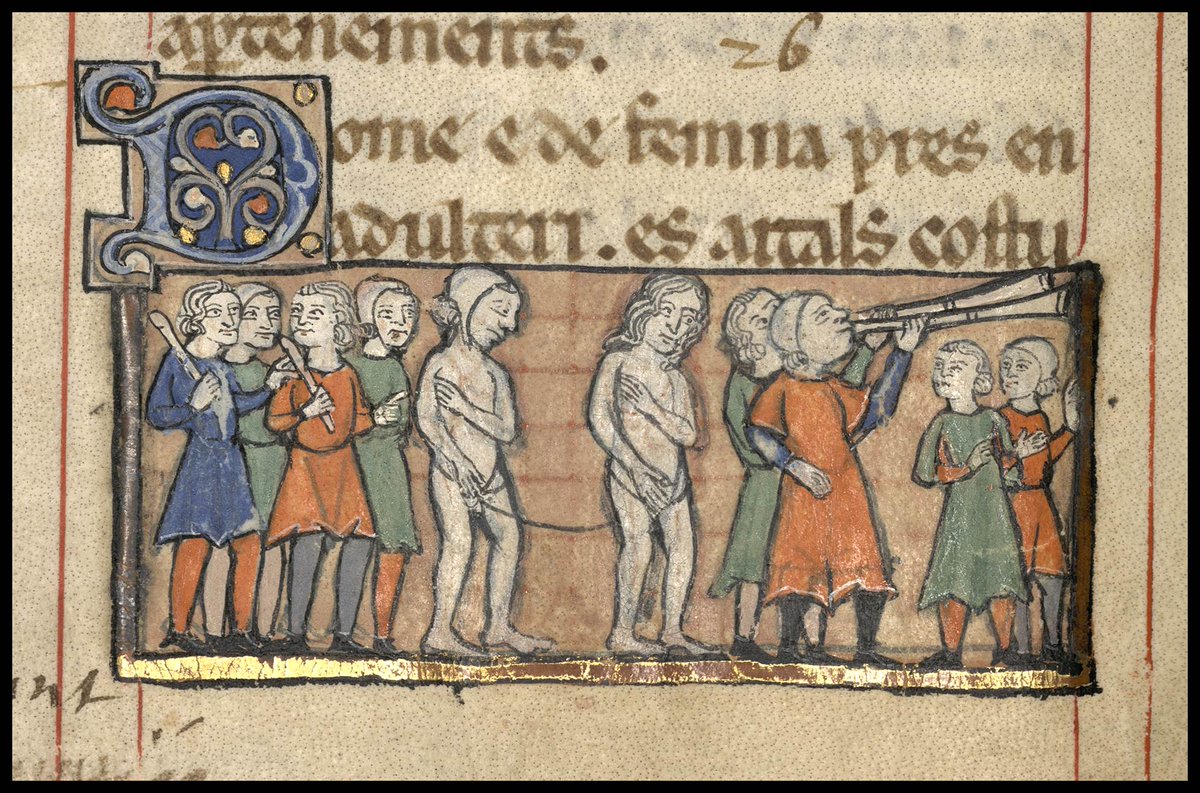 apertenements. 26
Dome e de femna pres en
adulteri. es aitals costu